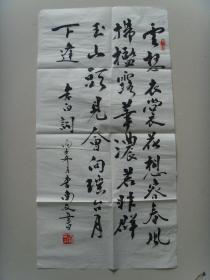 雲想衣裳花想容春風
拂檻露華濃若非群
玉山頭見會向瑤台月
下逢
李白詞